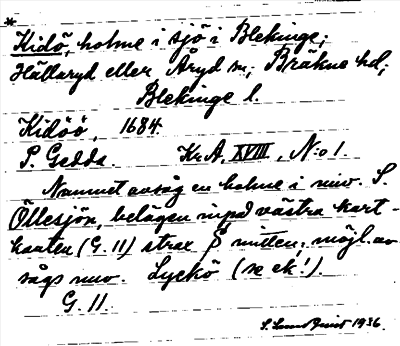 *
Kidö, holme i sjö i Blekinge;
Hällaryd eller Åryd sn; Bräkne hd;
Blekinge l.
Kidöö, 1684.
P. Gedda. Kr. A. XVIII, N:o 1.
Namnet avsåg en holme i nuv. S.
Öllesjön, belägen invid västra kart-
kanten (G. 11) strax S mitten; möjl. av
sågs nuv. Lyckö (se ek!).
G. 11.
1936